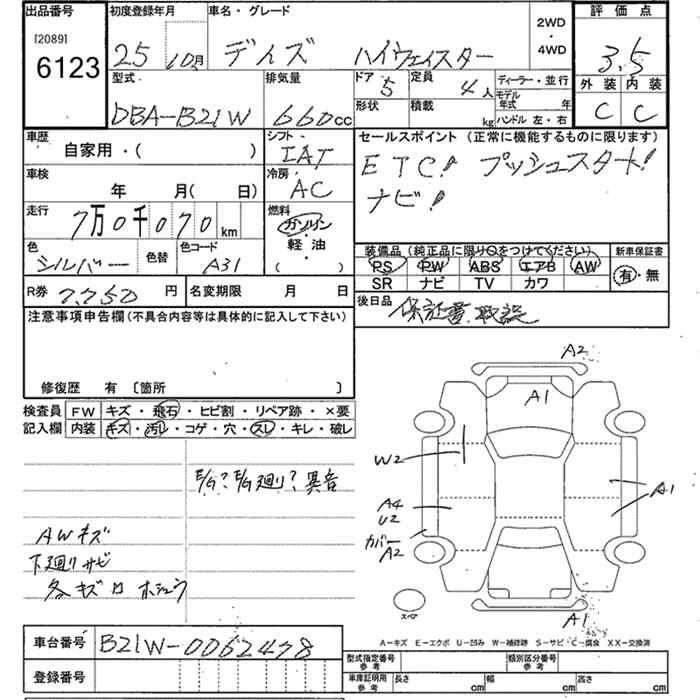 出品番号 初度登録年月 車名・グレード 2WD ・ 4WD 評価点
[2089]
6123 25 10月 デイズ ハイウェイスター 3.5
型式 排気量 ドア 5 定員 4人 ディーラー・並行 外装 内装
DBA-B21W 660cc 形状 積載 kg モデル年式 年 C C
ハンドル 左・右
車歴 シフト セールスポイント (正常に機能するものに限ります)
自家用・( ) IAT ETC! プッシュスタート!
車検 冷房 ナビ!
年 月( 日) AC
走行 燃料
7万0千070km ガソリン
・
軽油
( )
色 色替 色コード 装備品(純正品に限り○をつけてください) 新車保証書
シルバー A31 PS PW ABS エアB AW 有・無
SR ナビ TV カワ
R券 7,750 円 名変期限 月 日 後日品 保証書、取説
注意事項申告欄(不具合内容等は具体的に記入して下さい)
修復歴 有 〔箇所 〕
検査員 FW キズ・飛石・ヒビ割・リペア跡・×要
記入欄 内装 キズ・汚レ・コゲ・穴・スレ・キレ・破レ
E/G?E/G廻り?異音
AWキズ
下廻りサビ
各キズロホシュウ
A2
A1
W2
A4
U2
カバー
A2
A1
スペア
A1
A-キズ E-エクボ U-凹み W-補修跡 S-サビ C-腐食 XX-交換済
車台番号 B21W-0062478
登録番号
型式指定番号 参考 類別区分番号 参考
車庫証明用 参考 長さ cm 幅 cm 高さ cm